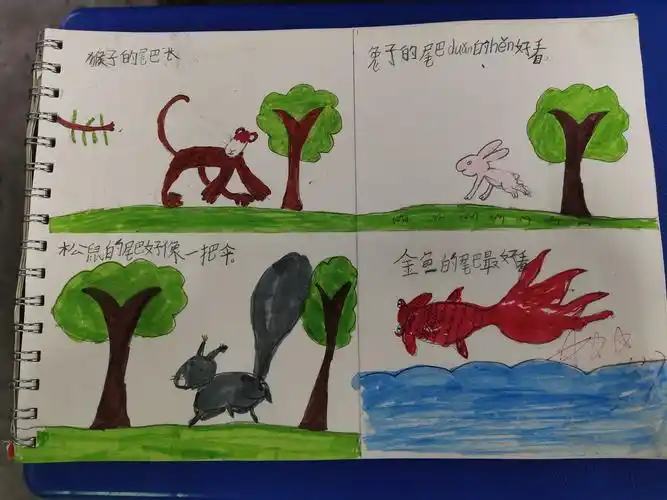 猴子的尾巴长
兔子的尾巴duǎn的hěn好看。
松鼠的尾巴好像一把伞。
金鱼的尾巴最好看